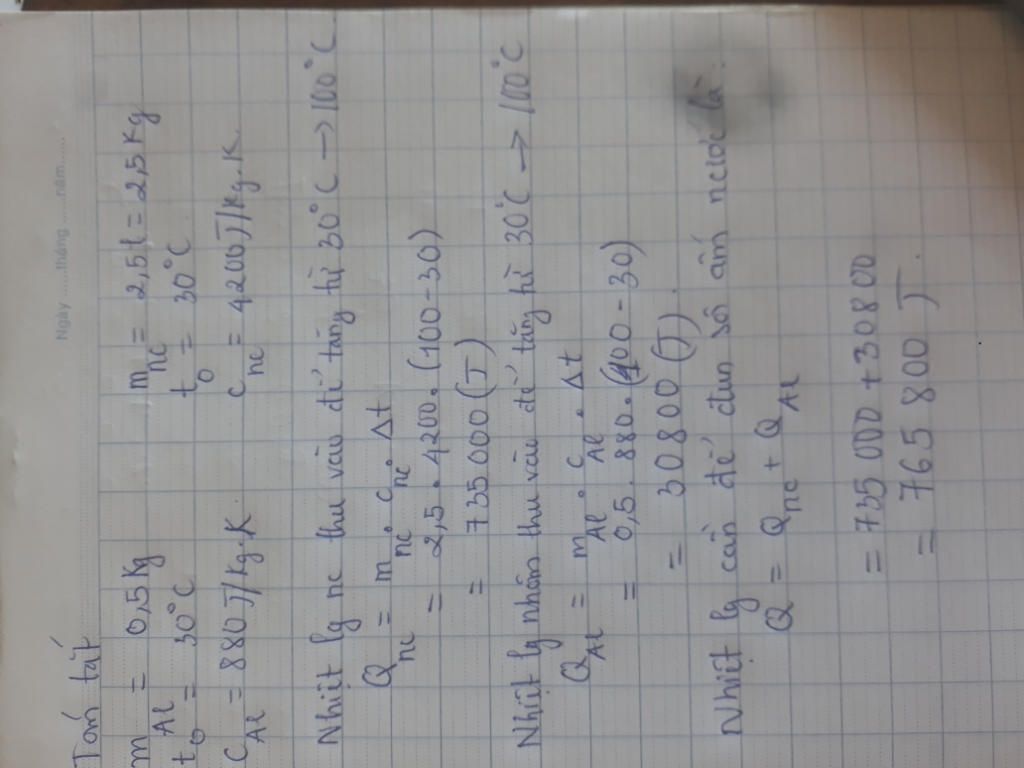 Ngày ......tháng ......năm.......
Tóm tắt
m Al = 0,5 kg m nc = 2,5 l = 2,5 kg
t o = 30°C t o = 30°C
C Al = 880 J/kg.K c nc = 4200 J/kg.K
Nhiệt lg nc thu vào để tăng từ 30°C → 100°C
Q nc = m nc . c nc . Δt
= 2,5 . 4200 . (100 - 30)
= 735 000 (J)
Nhiệt lg nhôm thu vào để tăng từ 30°C → 100°C
Q Al = m Al . c Al . Δt
= 0,5 . 880 . (100 - 30)
= 30 800 (J).
Nhiệt lg cần để đun sôi ấm nước là:
Q = Q nc + Q Al
= 735 000 + 30 800
= 765 800 J.